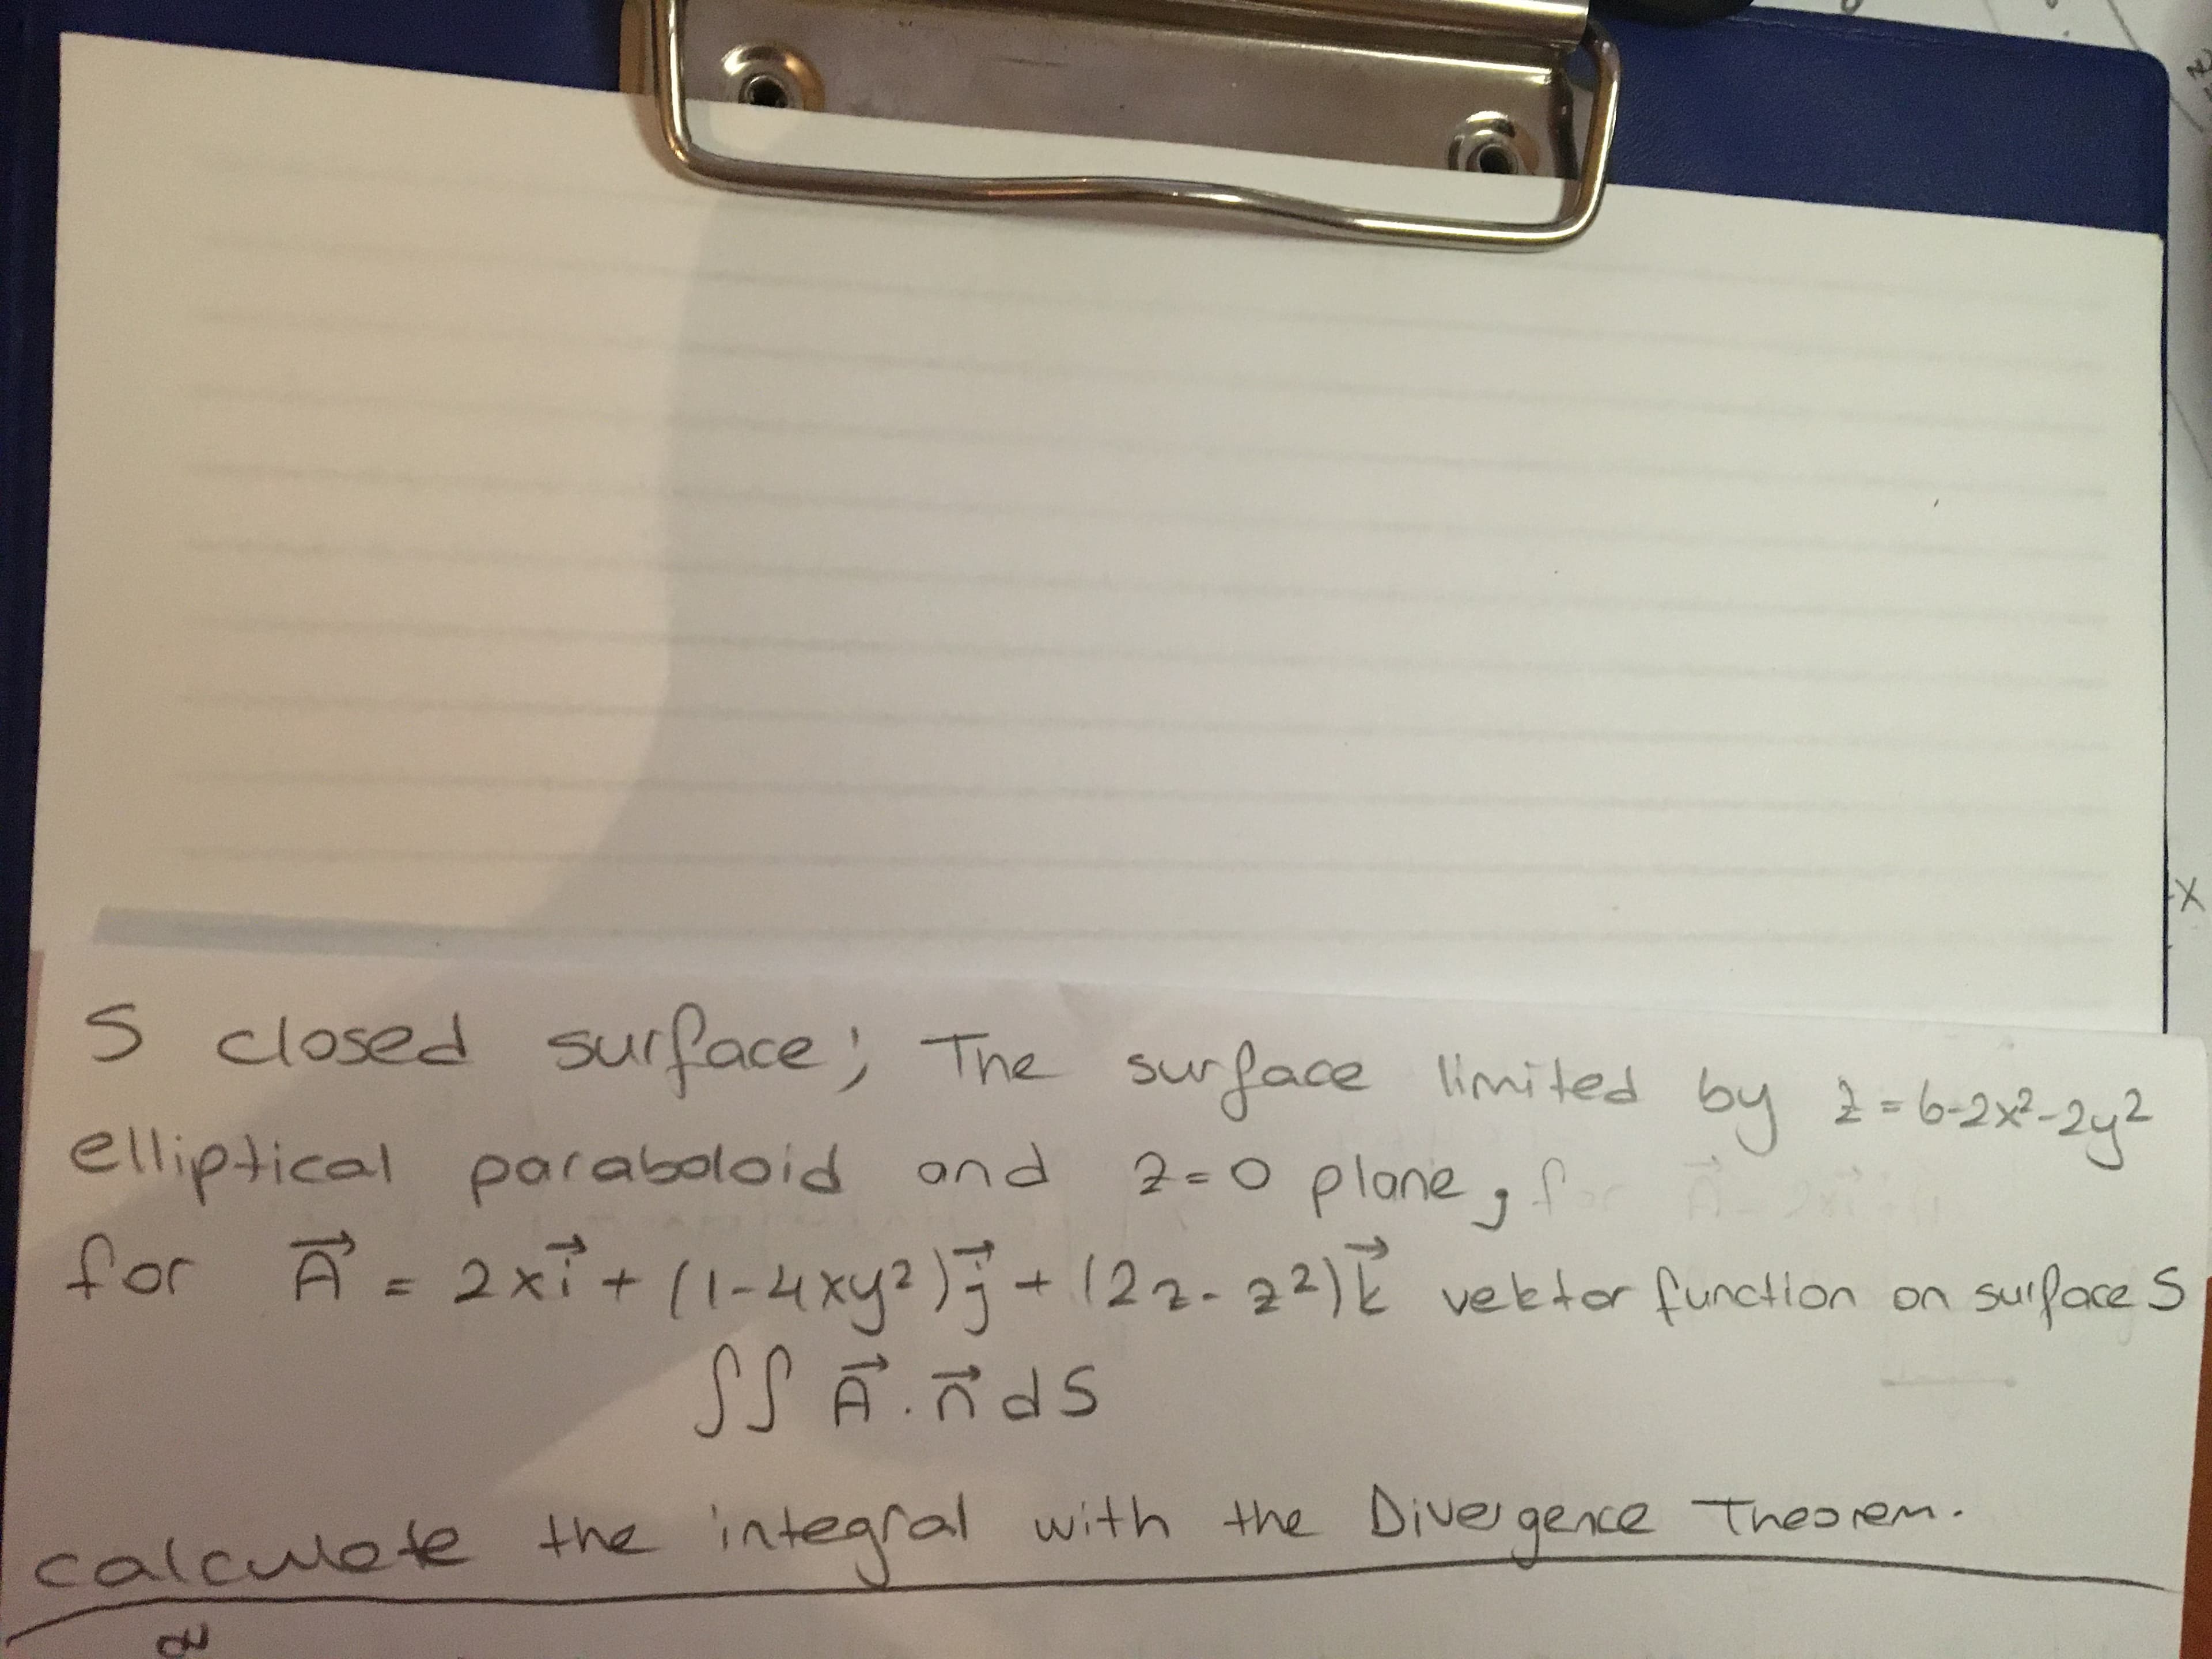 S closed surface; The surface limited by z=6-2x²-2y²
elliptical paraboloid and z=0 plane,
for A⃗ = 2xi⃗ + (1-4xy²)j⃗ + (2z-z²)k⃗ vektor function on surface S
∬ A⃗ . n⃗ dS
calculate the integral with the Divergence Theorem.
x